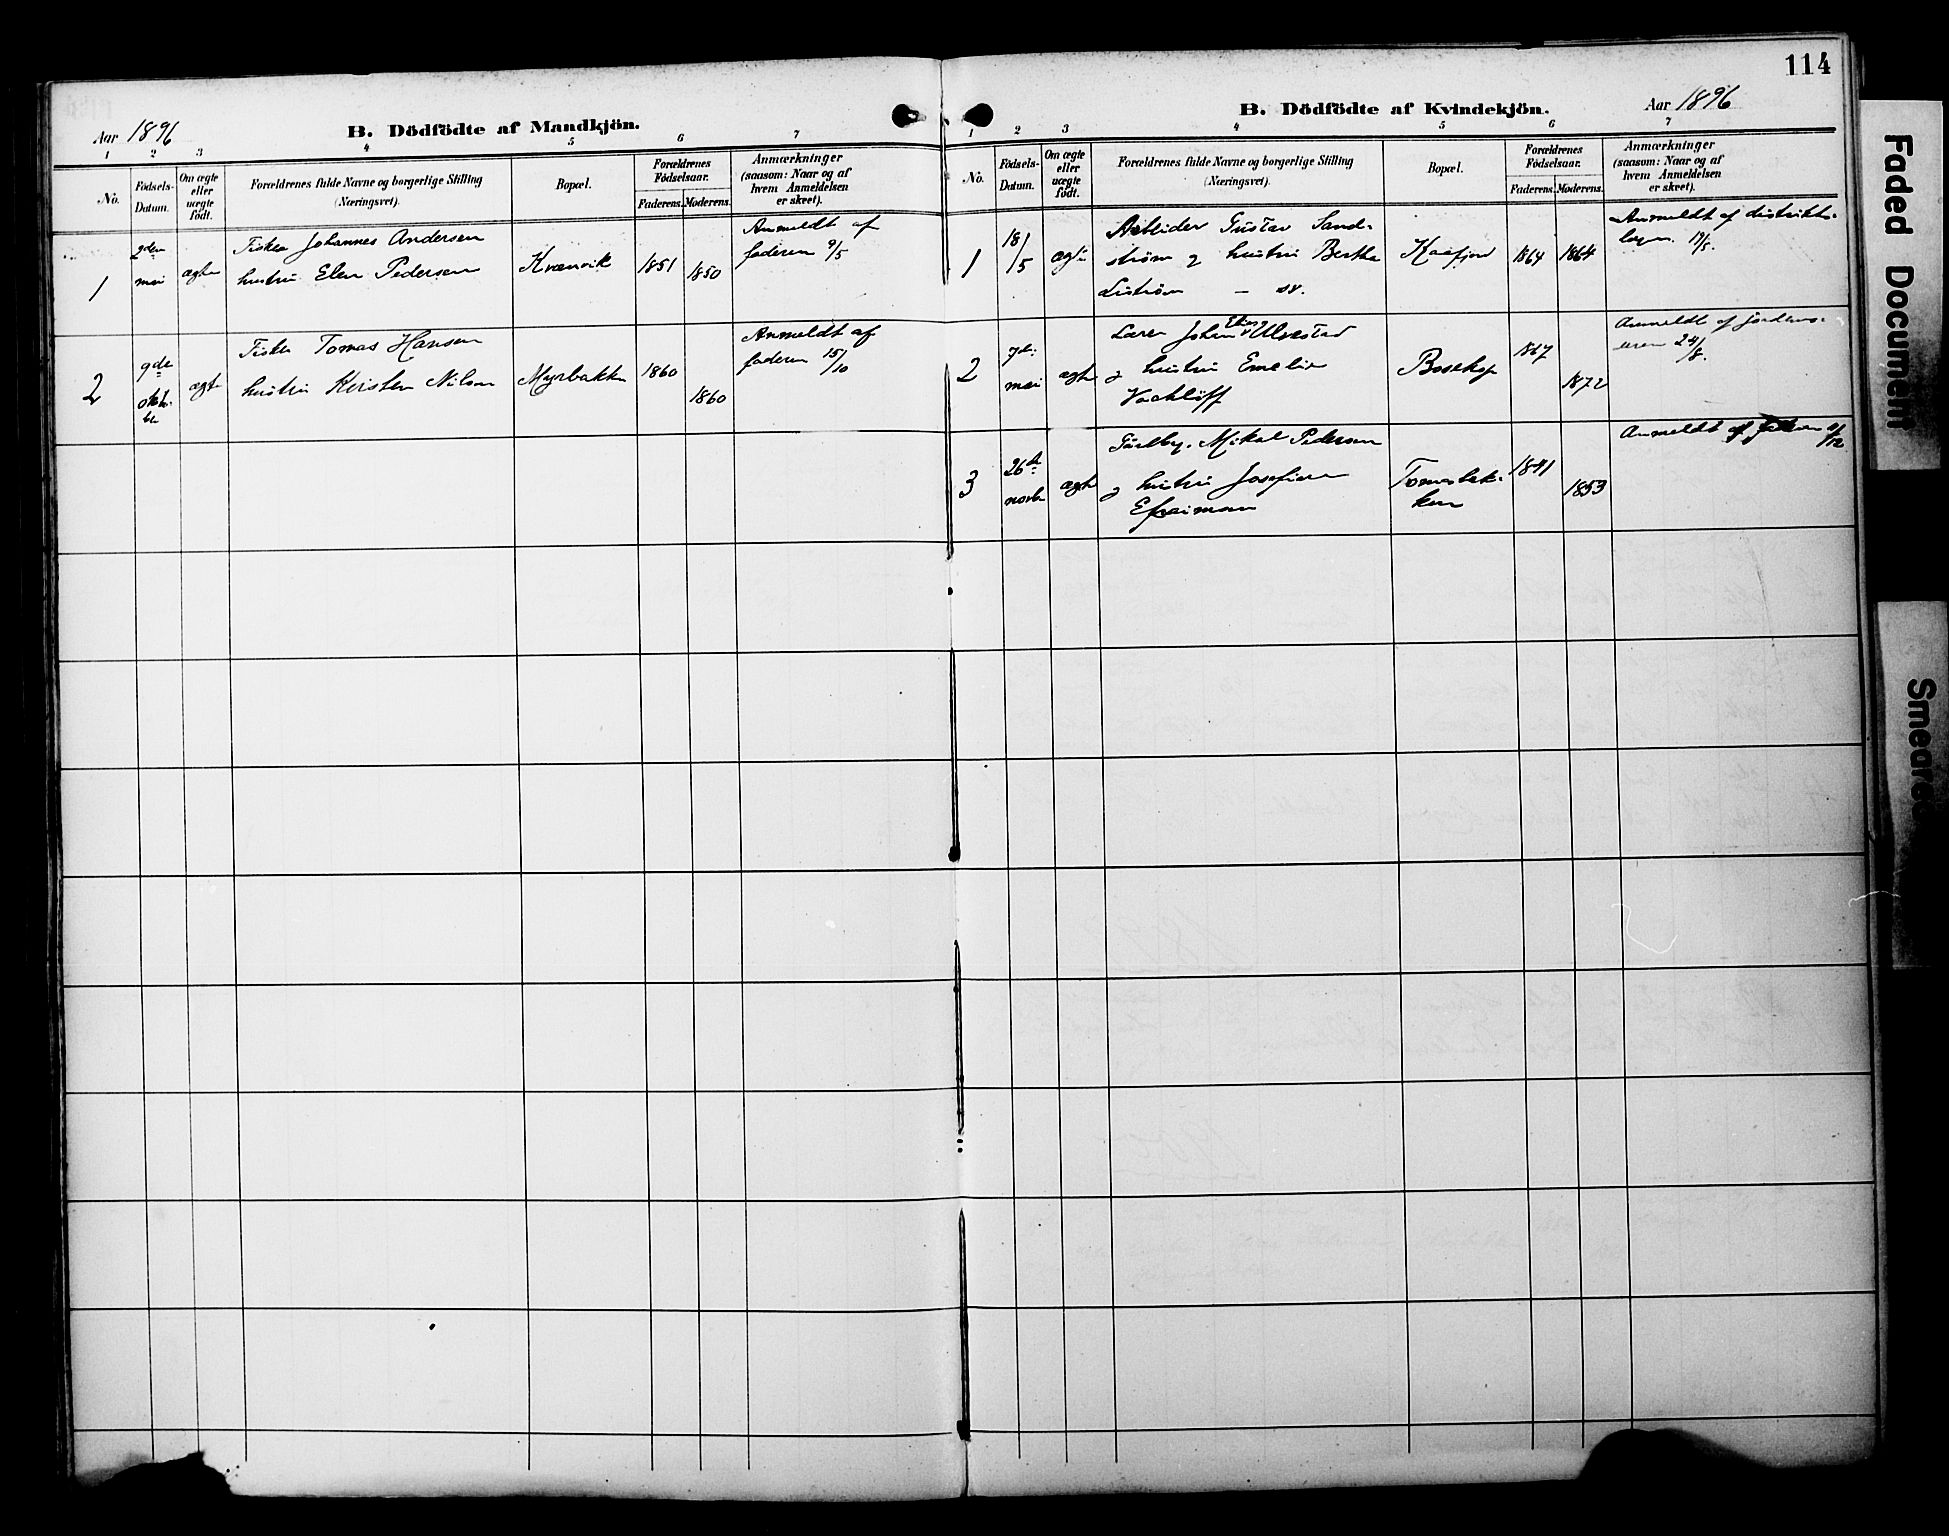 114
Aar 1896
B. Dödfödte af Mandkjön.
1 2 3 4 5 6 7
No.
Födsels-
Datum.
Om ægte
eller
uægte
födt.
Forældrenes fulde Navne og borgerlige Stilling
(Næringsvei).
Bopæl.
Forældrenes
Födselsaar.
Faderens. Moderens.
Anmærkninger
(saasom: Naar og af
hvem Anmeldelsen
er skeet).
1
2den
mai
ægte
Fisker Johannes Andersen
hustru Elen Pedersen
Kvænvik
1851
1850
Anmeldt af
faderen 9/5
2
9de
oktb.
ægte
Fisker Tomas Hansen
hustru Kersten Nilsen
Myrbakken
1860
1860
Anmeldt af
faderen 15/10
B. Dödfödte af Kvindekjön.
Aar 1896
1 2 3 4 5 6 7
No.
Födsels-
Datum.
Om ægte
eller
uægte
födt.
Forældrenes fulde Navne og borgerlige Stilling
(Næringsvei).
Bopæl.
Forældrenes
Födselsaar.
Faderens. Moderens.
Anmærkninger
(saasom: Naar og af
hvem Anmeldelsen
er skeet).
1
18/5
ægte
Arbeider Gustav Sand-
ström og hustru Berthe
Liström —
Kaafjord
1864
1864
Anmeldt af distrikts-
lægen 19/5.
2
7de
mai
ægte
Lærer Johan Ulvestad
og hustru Emelie
Bosekop
1867
1872
Anmeldt af jordemo-
eren 24/8.
3
26de
novbr
ægte
Gårdbr. Mikal Pedersen
og hustru Josefine
Efraimsen
Tomasbak-
ken
1841
1853
Anmeldt af faderen
Faded Document
Smeared